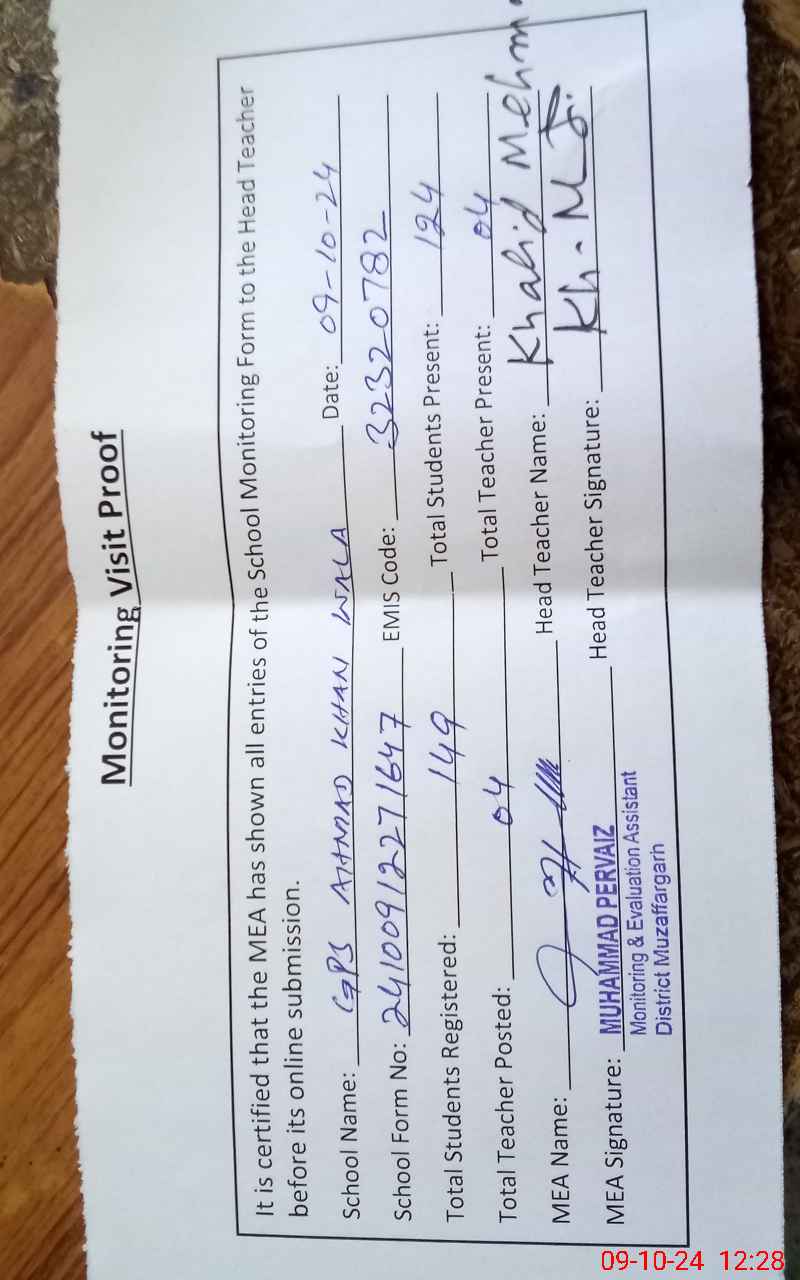 Monitoring Visit Proof
It is certified that the MEA has shown all entries of the School Monitoring Form to the Head Teacher
before its online submission.
School Name: GPS AHMAD KHAN WALA Date: 09-10-24
School Form No: 241009122271647 EMIS Code: 32320782
Total Students Registered: 149 Total Students Present: 124
Total Teacher Posted: 04 Total Teacher Present: 04
MEA Name: Head Teacher Name: Khalid Mehm
MEA Signature: MUHAMMAD PERVAIZ Head Teacher Signature: Kh. M
Monitoring & Evaluation Assistant
District Muzaffargarh
09-10-24 12:28